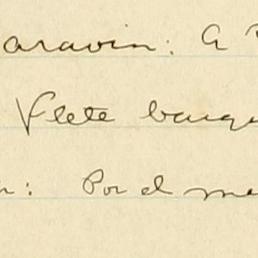 aravin: A
Flete barqu
n: Por el me